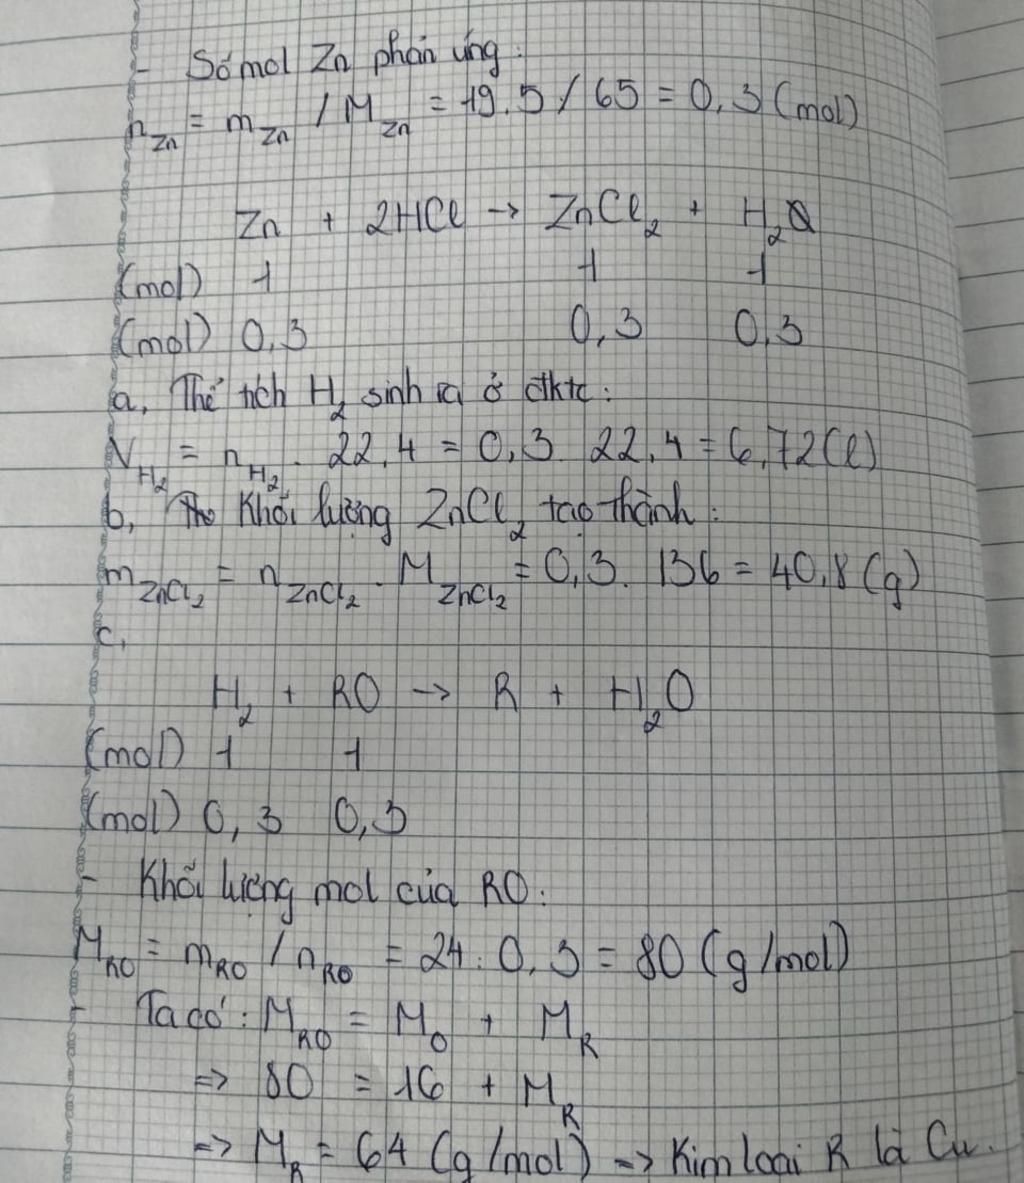 - Số mol Zn phản ứng:
n_Zn = m_Zn / M_Zn = 19.5 / 65 = 0,3 (mol)
Zn + 2HCl → ZnCl₂ + H₂
(mol) 1 1 1
(mol) 0,3 0,3 0,3
a, Thể tích H₂ sinh ra ở đktc:
V_H₂ = n_H₂ . 22,4 = 0,3. 22,4 = 6,72 (l)
b, Khối lượng ZnCl₂ tạo thành:
m_ZnCl₂ = n_ZnCl₂ . M_ZnCl₂ = 0,3. 136 = 40,8 (g)
c,
H₂ + RO → R + H₂O
(mol) 1 1
(mol) 0,3 0,3
- Khối lượng mol của RO:
M_RO = m_RO / n_RO = 24: 0,3 = 80 (g/mol)
- Ta có: M_RO = M_O + M_R
=> 80 = 16 + M_R
=> M_R = 64 (g/mol) => Kim loại R là Cu.